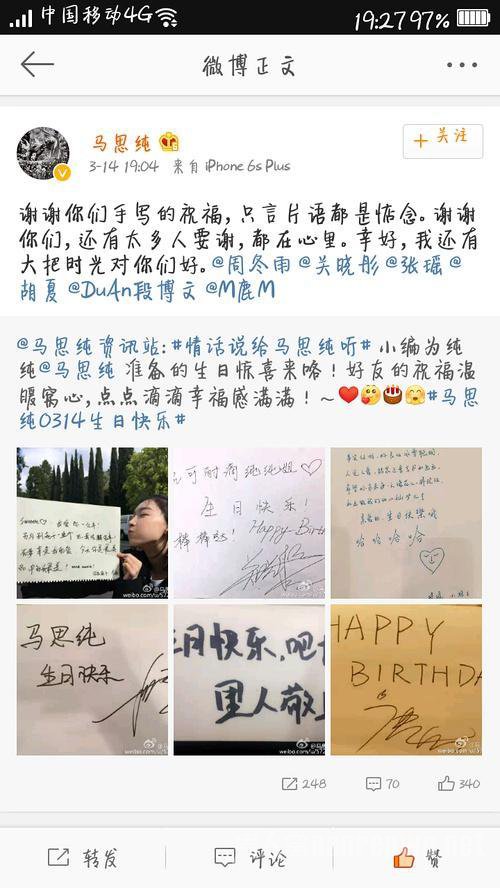 中国移动4G
19:27 97%
微博正文
马思纯
+关注
3-14 19:04 来自iPhone 6s Plus
谢谢你们手写的祝福,只言片语都是惦念。谢谢
你们,还有太多人要谢,都在心里。幸好,我还有
大把时光对你们好。@周冬雨 @关晓彤 @张瑶 @
胡夏 @DuAn段博文 @M鹿M
@马思纯资讯站:#情话说给马思纯听# 小编为纯
纯@马思纯 准备的生日惊喜来咯!好友的祝福温
暖窝心,点点滴滴幸福感满满!~ #马思
纯0314生日快乐#
可耐滴纯纯姐
生日快乐!
棒棒哒! Happy Birth
生日快乐
哈哈哈哈
马思纯
生日快乐
生日快乐,吧
里人敬上
HAPPY
BIRTHDA
weibo.com/u/572
248
70
340
转发
评论
赞